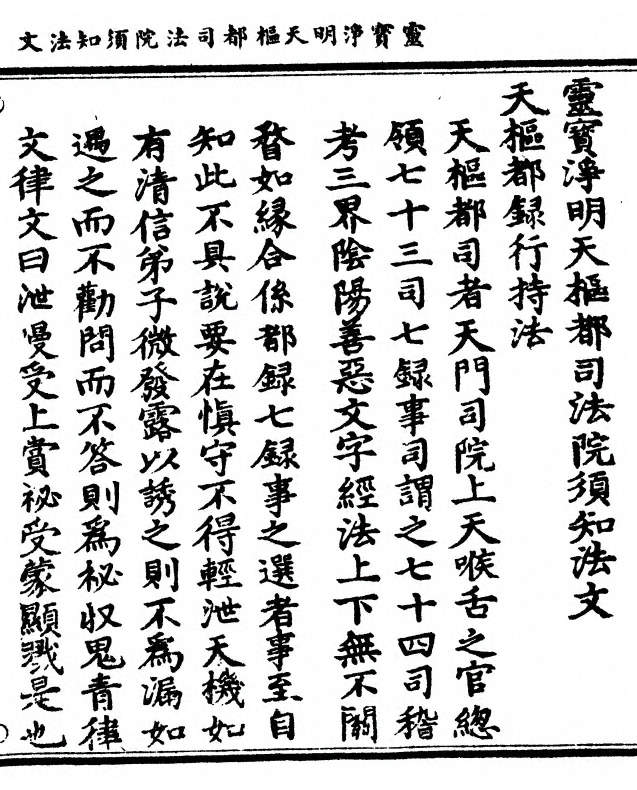 靈寶淨明天樞都司法院須知法文
靈寶淨明天樞都司法院須知法文
天樞都録行持法
天樞都司者天門司院上天喉舌之官緫
領七十三司七録事司謂之七十四司稽
考三界隂陽善惡文字經法上下無不關
瞀如縁合係都録七録事之選者事至自
知此不具說要在慎守不得輕泄天機如
有清信弟子微發露以誘之則不為漏如
遇之而不勸問而不答則為祕収鬼青律
文律文曰泄曼受上賞祕受蒙顯戮是也